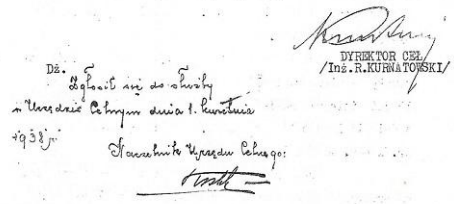 DYREKTOR CEŁ
/Inż.R.KURNATOWSKI/
Dż.
Zgłosił się do służby
w Urzędzie Celnym dnia 1. kwietnia
1938 r.
Naczelnik Urzędu Celnego: